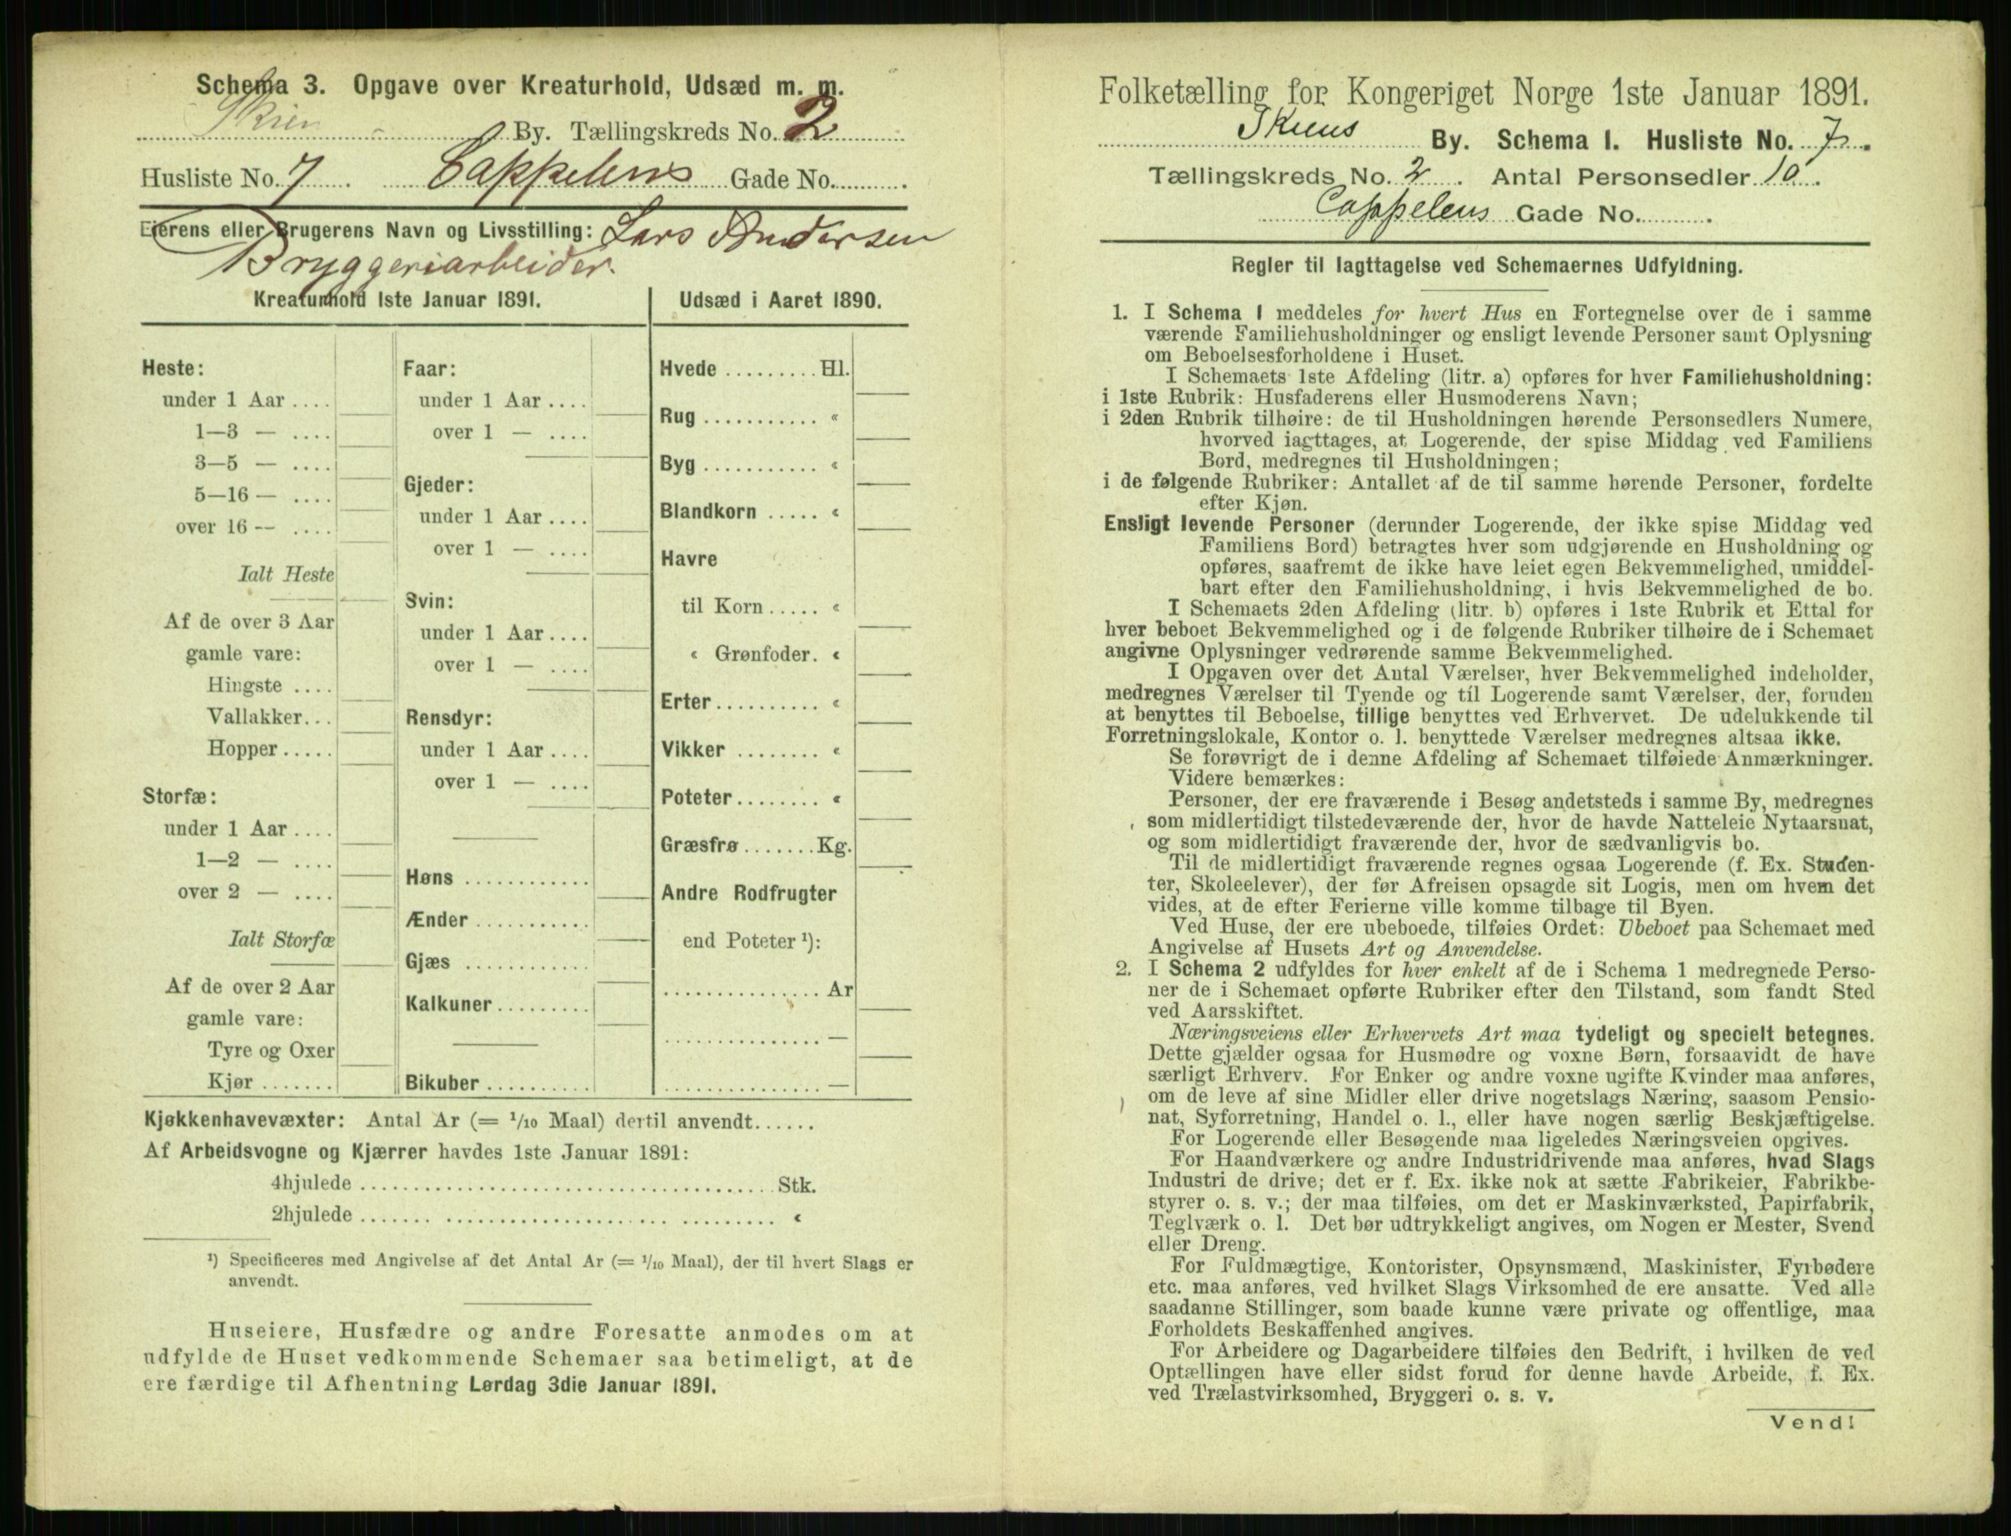 Schema 3. Opgave over Kreaturhold, Udsæd m. m.
Skien By. Tællingskreds No. 2
Husliste No. 7 Cappelens Gade No.
Eierens eller Brugerens Navn og Livsstilling: Lars Andersen
Bryggeriarbeider.
Kreaturhold 1ste Januar 1891.
Heste:
under 1 Aar ....
1—3 — ....
3—5 — ....
5—16 — ....
over 16 — ....
Ialt Heste
Af de over 3 Aar
gamle vare:
Hingste ....
Vallakker...
Hopper .....
Storfæ:
under 1 Aar ....
1—2 — ....
over 2 — ....
Ialt Storfæ
Af de over 2 Aar
gamle vare:
Tyre og Oxer
Kjør .......
Faar:
under 1 Aar ....
over 1 — ....
Gjeder:
under 1 Aar ....
over 1 — ....
Svin:
under 1 Aar ....
over 1 — ....
Rensdyr:
under 1 Aar ....
over 1 — ....
Høns ............
Ænder ...........
Gjæs ............
Kalkuner.........
Bikuber ..........
Udsæd i Aaret 1890.
Hvede ......... Hl.
Rug ........... «
Byg ........... «
Blandkorn ..... «
Havre
til Korn ..... «
« Grønfoder. «
Erter.......... «
Vikker ........ «
Poteter........ «
Græsfrø ....... Kg.
Andre Rodfrugter
end Poteter ¹):
............... Ar
............... —
............... —
Kjøkkenhavevæxter: Antal Ar (= 1/10 Maal) dertil anvendt......
Af Arbeidsvogne og Kjærrer havdes 1ste Januar 1891:
4hjulede ........................................ Stk.
2hjulede ........................................ «
¹) Specificeres med Angivelse af det Antal Ar (= 1/10 Maal), der til hvert Slags er
anvendt.
Huseiere, Husfædre og andre Foresatte anmodes om at
udfylde de Huset vedkommende Schemaer saa betimeligt, at de
ere færdige til Afhentning Lørdag 3die Januar 1891.
Folketælling for Kongeriget Norge 1ste Januar 1891.
Skiens By. Schema I. Husliste No. 7.
Tællingskreds No. 2. Antal Personsedler 10.
Cappelens Gade No. .
Regler til Iagttagelse ved Schemaernes Udfyldning.
1. I Schema 1 meddeles for hvert Hus en Fortegnelse over de i samme
værende Familiehusholdninger og ensligt levende Personer samt Oplysning
om Beboelsesforholdene i Huset.
I Schemaets 1ste Afdeling (litr. a) opføres for hver Familiehusholdning:
i 1ste Rubrik: Husfaderens eller Husmoderens Navn;
i 2den Rubrik tilhøire: de til Husholdningen hørende Personsedlers Numere,
hvorved iagttages, at Logerende, der spise Middag ved Familiens
Bord, medregnes til Husholdningen;
i de følgende Rubriker: Antallet af de til samme hørende Personer, fordelte
efter Kjøn.
Ensligt levende Personer (derunder Logerende, der ikke spise Middag ved
Familiens Bord) betragtes hver som udgjørende en Husholdning og
opføres, saafremt de ikke have leiet egen Bekvemmelighed, umiddel-
bart efter den Familiehusholdning, i hvis Bekvemmelighed de bo.
I Schemaets 2den Afdeling (litr. b) opføres i 1ste Rubrik et Ettal for
hver beboet Bekvemmelighed og i de følgende Rubriker tilhøire de i Schemaet
angivne Oplysninger vedrørende samme Bekvemmelighed.
I Opgaven over det Antal Værelser, hver Bekvemmelighed indeholder,
medregnes Værelser til Tyende og til Logerende samt Værelser, der, foruden
at benyttes til Beboelse, tillige benyttes ved Erhvervet. De udelukkende til
Forretningslokale, Kontor o. l. benyttede Værelser medregnes altsaa ikke.
Se forøvrigt de i denne Afdeling af Schemaet tilføiede Anmærkninger.
Videre bemærkes:
Personer, der ere fraværende i Besøg andetsteds i samme By, medregnes
som midlertidigt tilstedeværende der, hvor de havde Natteleie Nytaarsnat,
og som midlertidigt fraværende der, hvor de sædvanligvis bo.
Til de midlertidigt fraværende regnes ogsaa Logerende (f. Ex. Studen-
ter, Skoleelever), der før Afreisen opsagde sit Logis, men om hvem det
vides, at de efter Ferierne ville komme tilbage til Byen.
Ved Huse, der ere ubeboede, tilføies Ordet: Ubeboet paa Schemaet med
Angivelse af Husets Art og Anvendelse.
2. I Schema 2 udfyldes for hver enkelt af de i Schema 1 medregnede Perso-
ner de i Schemaet opførte Rubriker efter den Tilstand, som fandt Sted
ved Aarsskiftet.
Næringsveiens eller Erhvervets Art maa tydeligt og specielt betegnes.
Dette gjælder ogsaa for Husmødre og voxne Børn, forsaavidt de have
særligt Erhverv. For Enker og andre voxne ugifte Kvinder maa anføres,
om de leve af sine Midler eller drive nogetslags Næring, saasom Pensio-
nat, Syforretning, Handel o. l., eller have nogen særlig Beskjæftigelse.
For Logerende eller Besøgende maa ligeledes Næringsveien opgives.
For Haandværkere og andre Industridrivende maa anføres, hvad Slags
Industri de drive; det er f. Ex. ikke nok at sætte Fabrikeier, Fabrikbe-
styrer o. s. v.; der maa tilføies, om det er Maskinværksted, Papirfabrik,
Teglværk o. l. Det bør udtrykkeligt angives, om Nogen er Mester, Svend
eller Dreng.
For Fuldmægtige, Kontorister, Opsynsmænd, Maskinister, Fyrbødere
etc. maa anføres, ved hvilket Slags Virksomhed de ere ansatte. Ved alle
saadanne Stillinger, som baade kunne være private og offentlige, maa
Forholdets Beskaffenhed angives.
For Arbeidere og Dagarbeidere tilføies den Bedrift, i hvilken de ved
Optællingen have eller sidst forud for denne havde Arbeide, f. Ex.
ved Trælastvirksomhed, Bryggeri o. s. v.
Vend!